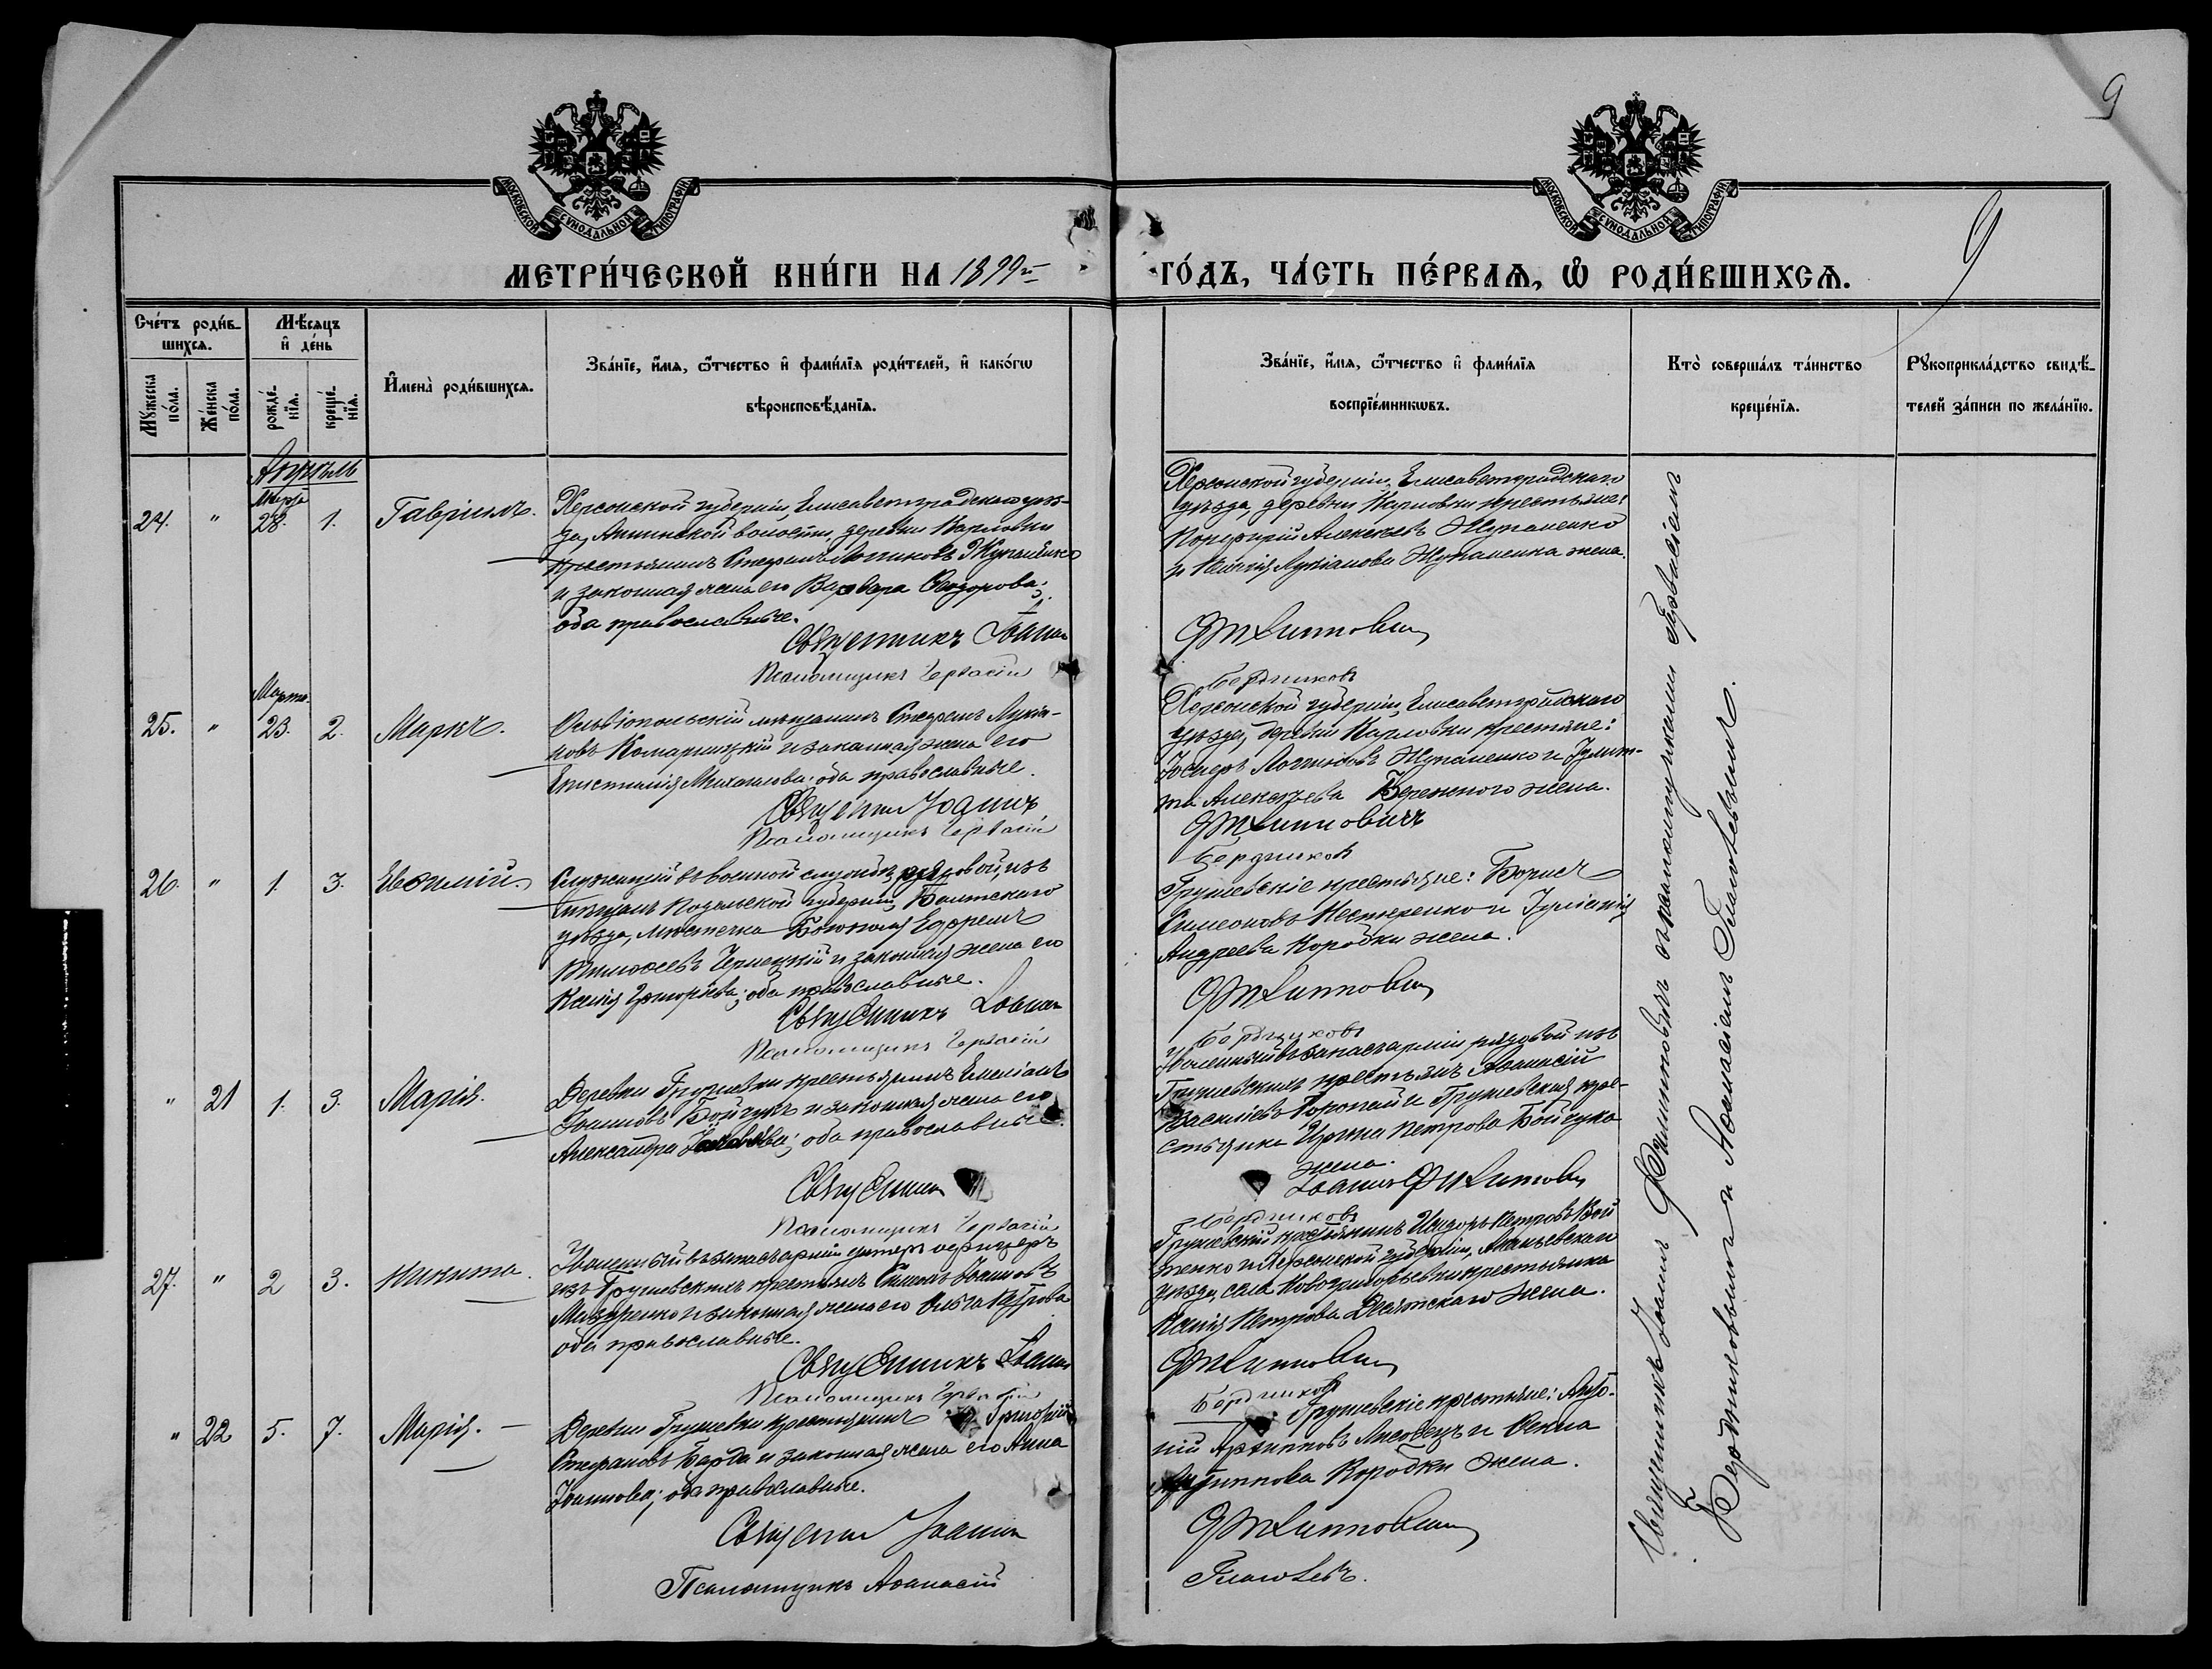 9
МОСКОВСКОЙ СѴНОДАЛЬНОЙ ТИПОГРАФІИ
МОСКОВСКОЙ СѴНОДАЛЬНОЙ ТИПОГРАФІИ
9
МЕТРИ́ЧЕСКОЙ КНИ́ГИ НА 1899й
ГО́ДЪ, ЧА́СТЬ ПЕ́РВАѦ, Ѽ РОДИ́ВШИХСѦ.
Сче́тъ роди́в-
шихсѧ.
Мѣ́сѧцъ
и҆ де́нь
Мꙋ́жеска
по́ла.
Же́нска
по́ла.
рожде́-
нїѧ.
креще́-
нїѧ.
И҆мена̀ роди́вшихсѧ.
Зва́нїе, и҆́мѧ, ѻ҆́тчество и҆ фами́лїѧ роди́телей, и҆ како́гѡ
вѣроисповѣ́данїѧ.
Зва́нїе, и҆́мѧ, ѻ҆́тчество и҆ фами́лїѧ
воспрїе́мникѡвъ.
Кто̀ соверша́лъ та́инство
креще́нїѧ.
Рꙋкоприкла́дство свидѣ́-
телей за́писи по жела́нїю.
Апрѣль
24. " Марта 28. 1. Гавріилъ.
Херсонской губерніи, Елисаветградскаго уѣз-
да, Аннинской волости, деревни Карловки
крестьянинъ Стефанъ Логиновъ Жупаненко
и законная жена его Варвара Ѳеодорова;
оба православные.
Священникъ Іоаннъ
Псаломщикъ Гервасій
Херсонской губерніи, Елисаветградскаго
уѣзда, деревни Карловки крестьяне:
Порфирій Алексѣевъ Жупаненко
и Лукіанова Жупаненка жена.
Филипповичъ
Бердниковъ
25. " Марта 23. 2. Маркъ.
Ольвіопольскій мѣщанинъ Стефанъ Лукіа-
новъ Комарницкій и законная жена его
Епистимія Михаилова; оба православные.
Священникъ Іоаннъ
Псаломщикъ Гервасій
Херсонской губерніи, Елисаветградскаго
уѣзда, деревни Карловки крестьяне:
Іосифъ Логиновъ Жупаненко и Іулит-
та Алексѣева Бережного жена.
Филипповичъ
Бердниковъ
26. " 1. 3. Евѳимій.
Служащій въ военной службѣ, рядовой, изъ
мѣщанъ Подольской губерніи, Балтскаго
уѣзда, мѣстечка Ефремъ
Тимоѳеевъ Чернецкій и законная жена его
Ксенія Григорьева; оба православные.
Священникъ Іоаннъ
Псаломщикъ Гервасій
Грушевскіе крестьяне: Борисъ
Симеоновъ Нестеренко и Іуліанія
Андреева Коробки жена.
Филипповичъ
Бердниковъ
" 21 1. 3. Марія.
Деревни Грушевки крестьянинъ Емеліанъ
Іоанновъ Бойчукъ и законная жена его
Александра Іаковлева; оба православные.
Священникъ
Псаломщикъ Гервасій
Уволенный въ запасъ арміи рядовой изъ
Грушевскихъ крестьянъ Аѳанасій
Василіевъ Горопай и Грушевская кре-
стьянка Ирина Петрова Бойчука
жена.
Іоаннъ Филипповичъ
Бердниковъ
27. " 2 3. Никита.
Уволенный въ запасъ арміи унтеръ офицеръ
изъ Грушевскихъ крестьянъ Симеонъ Іоанновъ
Мазуренко и законная жена его Ольга Петрова
оба православные.
Священникъ Іоаннъ
Псаломщикъ Гервасій
Грушевскій крестьянинъ Исидоръ Петровъ Бой
тенко и Херсонской губерніи, Ананьевскаго
уѣзда, села Новогригорьевки крестьянка
Ксенія Петрова жена.
Филипповичъ
Бердниковъ
" 22 5. 7. Марія.
Деревни Грушевки крестьянинъ Григорій
Стефановъ Барда и законная жена его Анна
Іоаннова; оба православные.
Священникъ Іоаннъ
Псаломщикъ Аѳанасій
Грушевскіе крестьяне: Анто-
ній Архиповъ Лисовецъ и Ѳекла
Коробки жена.
Филипповичъ
Священникъ Іоаннъ Филипповичъ съ псаломщиками Гервасіемъ
Бердниковымъ и Аѳанасіемъ